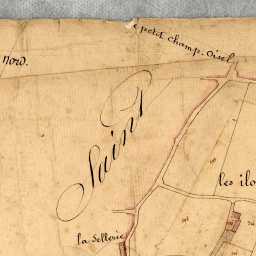 e petit champ-oisel
nord.
Saint
les ilo
la Sellerie